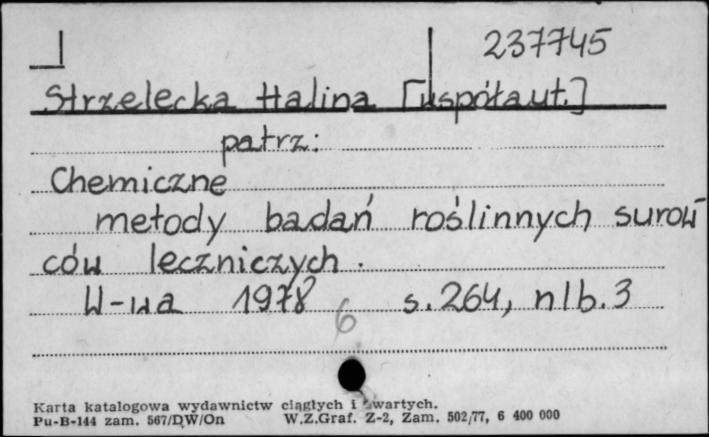 237745
Strzelecka Halina [współaut.]
patrz:
Chemiczne
metody badań roślinnych surow
ców leczniczych.
W-wa 1978 s. 264, nlb. 3
6
Karta katalogowa wydawnictw ciągłych i zwartych.
Pu-B-144 zam. 567/DW/On W.Z.Graf. Z-2, Zam. 502/77, 6 400 000